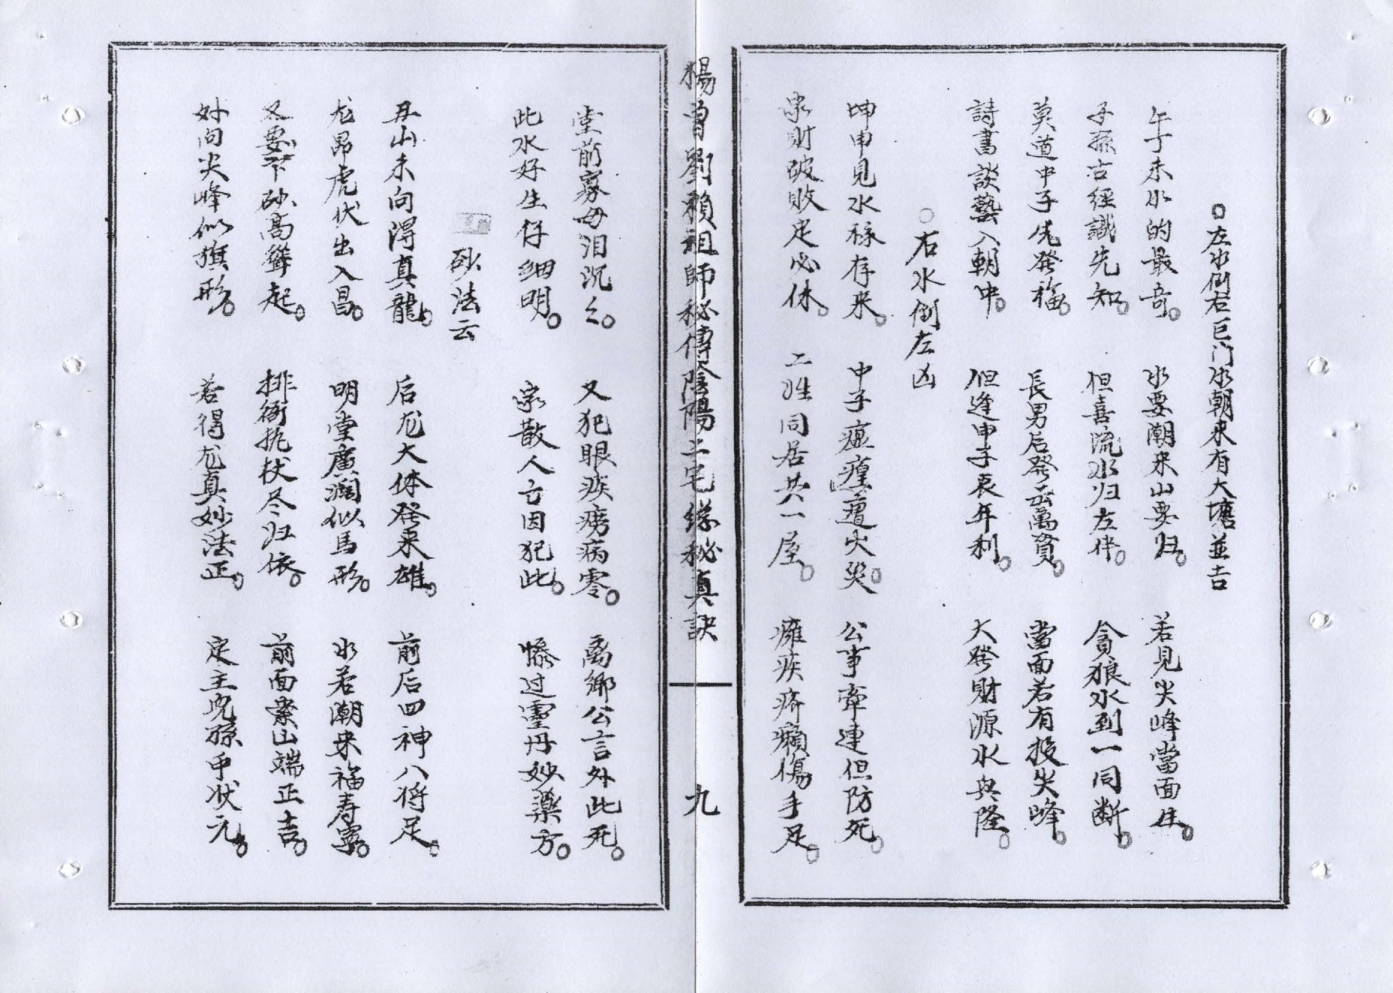 左水倒右巨门水朝来有大塘並吉
午子未水的最奇。水要潮来山要归。若見尖峰當面住。
子孫古經識先知。但喜流水归左伴。貪狼水到一同断。
莫道中子先發福。長男后發云萬資。當面若有投尖峰。
詩書談藝入朝中。但逢申子哀年利。大發財源水興隆。
右水倒左凶
坤申見水禄存来。中子瘟瘟遭火災。公事牽連但防死。
家財破敗定必休。二姓同居共一屋。癱疾癆癩傷手足。
楊曾劉賴祖師秘傳陰陽二宅總秘真訣
九
堂前寡母泪沉々。又犯眼疾癆病零。离鄉公言外此死。
此水好生仔細明。家散人亡因犯此。惨过靈丹妙藥方。
砂法云
丑山未向得真龍。后龙大体發来雄。前后四神八将足。
龙昂虎伏出入昌。明堂廣濶似馬形。水若潮来福寿寧。
又要下砂高聳起。排衙执杖尽归依。前面案山端正吉。
外向尖峰似旗形。若得龙真妙法正。定主兒孫中状元。